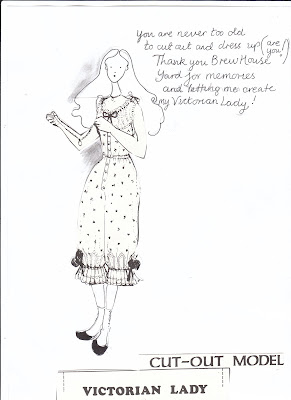 You are never too old
to cut out and dress up (are you!)
Thank you BrewHouse
Yard for memories
and letting me create
my Victorian Lady!
CUT-OUT MODEL
VICTORIAN LADY